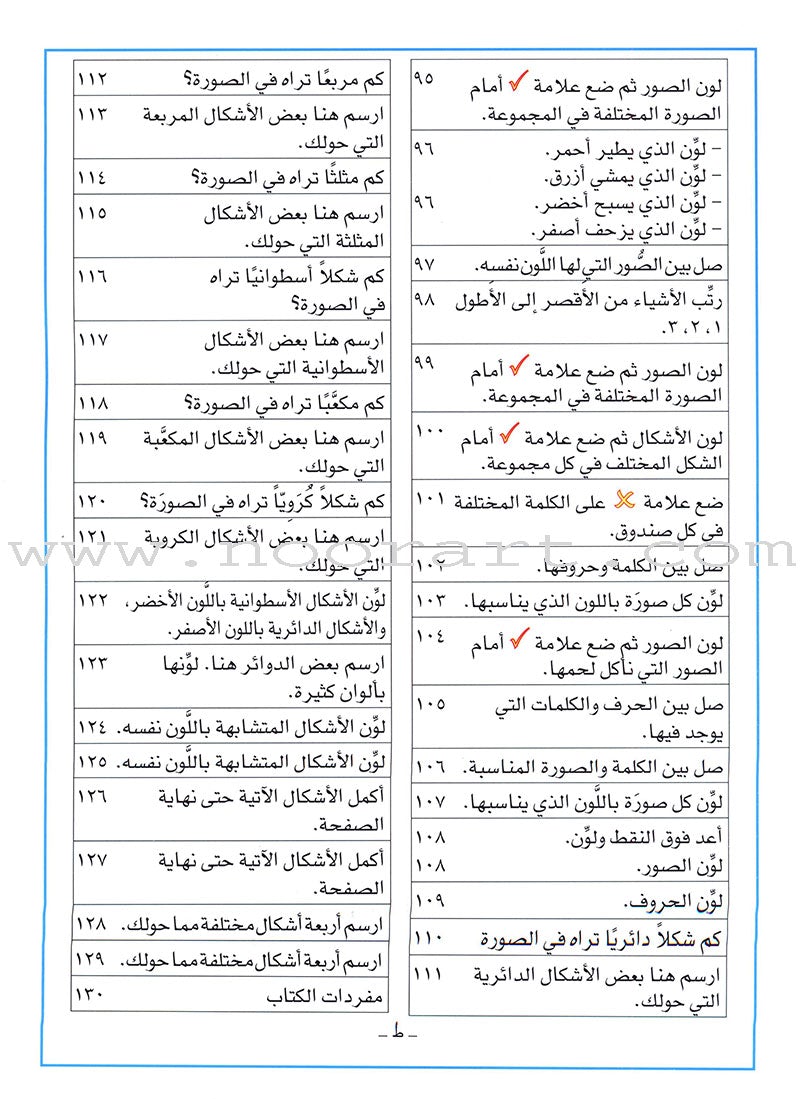 لون الصور ثم ضع علامة ✓ أمام ٩٥
الصورة المختلفة في المجموعة.
– لوِّن الذي يطير أحمر. ٩٦
– لوِّن الذي يمشي أزرق.
– لوِّن الذي يسبح أخضر. ٩٦
– لوِّن الذي يزحف أصفر.
صل بين الصُّور التي لها اللَّون نفسه. ٩٧
رتِّب الأشياء من الأقصر إلى الأطول ٩٨
١، ٢، ٣.
لون الصور ثم ضع علامة ✓ أمام ٩٩
الصورة المختلفة في المجموعة.
لون الأشكال ثم ضع علامة ✓ أمام ١٠٠
الشكل المختلف في كل مجموعة.
ضع علامة ✗ على الكلمة المختلفة ١٠١
في كل صندوق.
صل بين الكلمة وحروفها. ١٠٢
لوِّن كل صورَة باللون الذي يناسبها. ١٠٣
لون الصور ثم ضع علامة ✓ أمام ١٠٤
الصور التي نأكل لحمها.
صل بين الحرف والكلمات التي ١٠٥
يوجد فيها.
صل بين الكلمة والصورة المناسبة. ١٠٦
لوِّن كل صورَة باللَّون الذي يناسبها. ١٠٧
أعد فوق النقط ولوِّن. ١٠٨
لوِّن الصور. ١٠٨
لوِّن الحروف. ١٠٩
كم شكلاً دائريًا تراه في الصورة ١١٠
ارسم هنا بعض الأشكال الدائرية ١١١
التي حولك.
كم مربعًا تراه في الصورة؟ ١١٢
ارسم هنا بعض الأشكال المربعة ١١٣
التي حولك.
كم مثلثًا تراه في الصورة؟ ١١٤
ارسم هنا بعض الأشكال ١١٥
المثلثة التي حولك.
كم شكلاً أسطوانيًا تراه ١١٦
في الصورة؟
ارسم هنا بعض الأشكال ١١٧
الأسطوانية التي حولك.
كم مكعَّبًا تراه في الصورة؟ ١١٨
ارسم هنا بعض الأشكال المكعَّبة ١١٩
التي حولك.
كم شكلاً كُرَوِيّاً تراه في الصورَة؟ ١٢٠
ارسم هنا بعض الأشكال الكروية ١٢١
التي حولك.
لوِّن الأشكال الأسطوانية باللَّون الأخضر، ١٢٢
والأشكال الدائرية باللون الأصفر.
ارسم بعض الدوائر هنا. لوِّنها ١٢٣
بألوان كثيرة.
لوِّن الأشكال المتشابهة باللَّون نفسه. ١٢٤
لوِّن الأشكال المتشابهة باللَّون نفسه. ١٢٥
أكمل الأشكال الآتية حتى نهاية ١٢٦
الصفحة.
أكمل الأشكال الآتية حتى نهاية ١٢٧
الصفحة.
ارسم أربعة أشكال مختلفة مما حولك. ١٢٨
ارسم أربعة أشكال مختلفة مما حولك. ١٢٩
مفردات الكتاب ١٣٠
– ط –
www.noorart.com